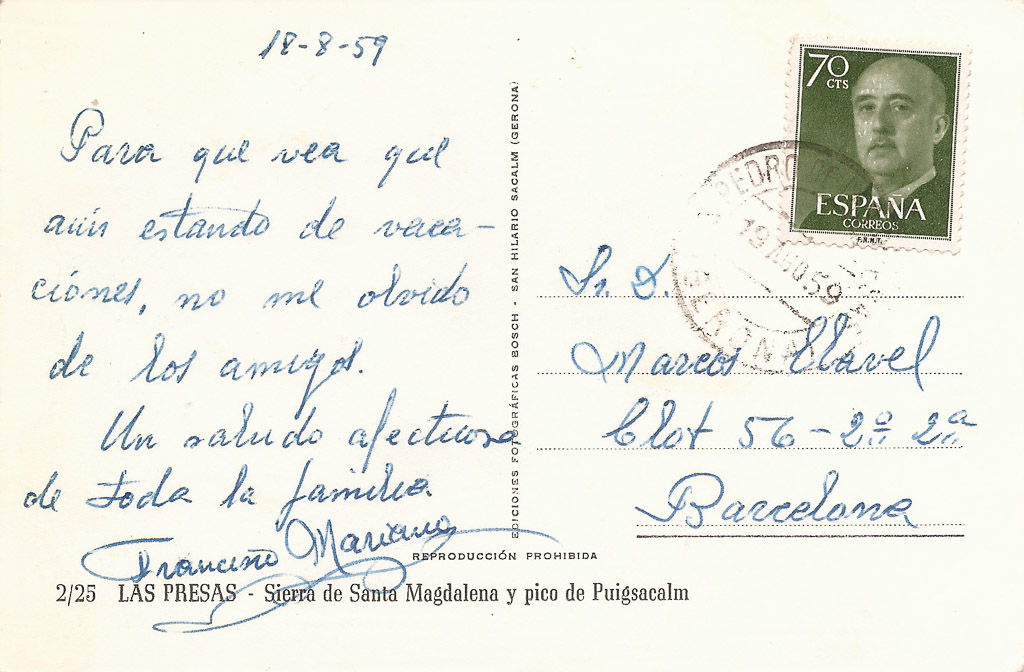 18-8-59
Para que vea que
aún estando de vaca-
ciones, no me olvido
de los amigos.
Un saludo afectuoso
de toda la familia
Francisco Mariano
EDICIONES FOTOGRÁFICAS BOSCH - SAN HILARIO SACALM (GERONA)
REPRODUCCIÓN PROHIBIDA
2/25 LAS PRESAS - Sierra de Santa Magdalena y pico de Puigsacalm
70
CTS
ESPAÑA
CORREOS
F.N.M.T.
PEDRO
19 AGO 59
GERONA
Sr. D.
Marcos Clavel
Clot 56 - 2º 2ª
Barcelona